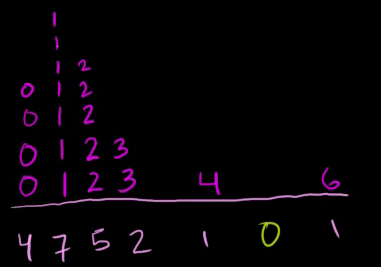 1
1
1 2
0 1 2
0 1 2
0 1 2 3
0 1 2 3 4 6
4 7 5 2 1 0 1